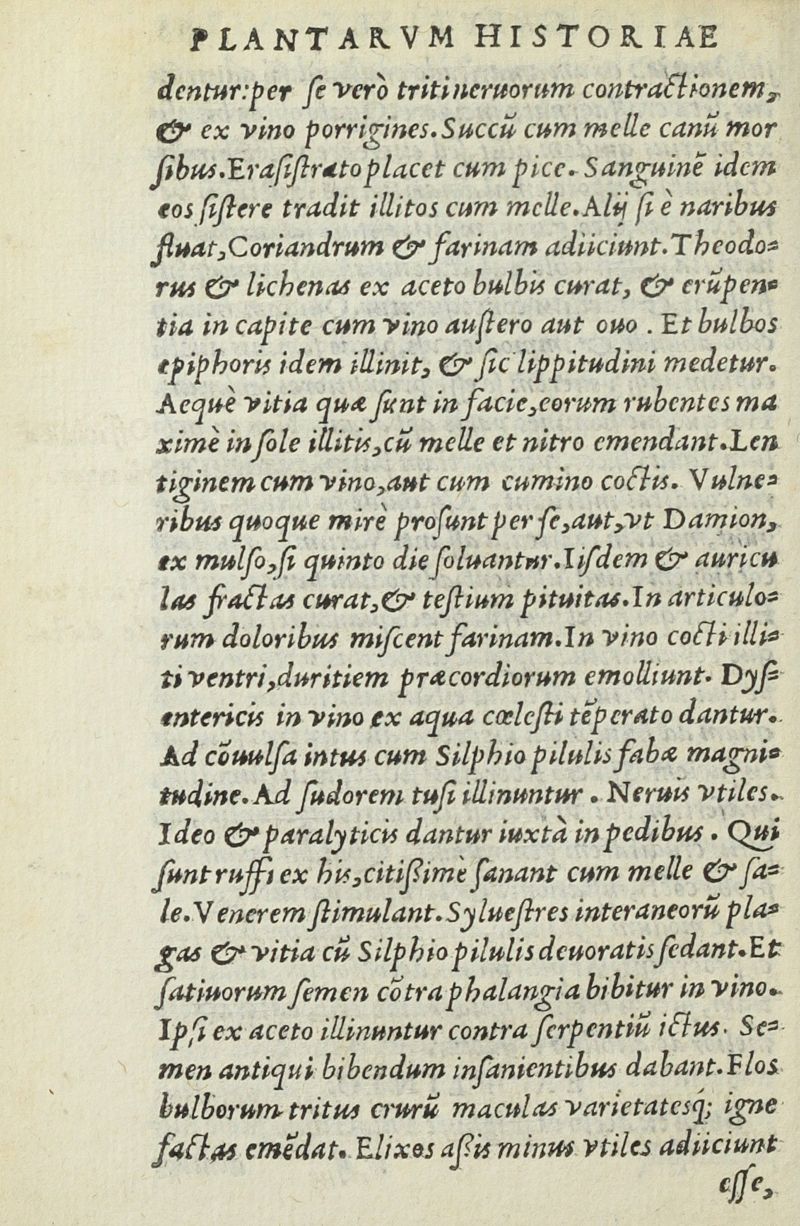 PLANTARVM HISTORIAE
dentur:per ſe verò triti neruorum contractionem,
& ex vino porrigines. Succũ cum melle canũ mor
ſibus. Eraſiſtrato placet cum pice. Sanguinẽ idem
eos ſiſtere tradit illitos cum melle. Alij ſi è naribus
fluat, Coriandrum & farinam adiiciunt. Theodo-
rus & lichenas ex aceto bulbis curat, & erũpen-
tia in capite cum vino auſtero aut ouo . Et bulbos
epiphoris idem illinit, & ſic lippitudini medetur.
Aequè vitia quæ ſunt in facie, eorum rubentes ma
ximè in ſole illitis, cũ melle et nitro emendant. Len
tiginem cum vino, aut cum cumino coctis. Vulne-
ribus quoque mirè proſunt per ſe, aut, vt Damion,
ex mulſo, ſi quinto die ſoluantur. Iiſdem & auricu
las fractas curat, & teſtium pituitas. In articulo-
rum doloribus miſcent farinam. In vino cocti illi-
ti ventri, duritiem præcordiorum emolliunt. Dyſ-
entericis in vino ex aqua cœleſti tẽperato dantur.
Ad cõuulſa intus cum Silphio pilulis fabæ magni-
tudine. Ad ſudorem tuſi illinuntur . Neruis vtiles.
Ideo & paralyticis dantur iuxtà in pedibus . Qui
ſunt ruffi ex his, citiſſimè ſanant cum melle & ſa-
le. Venerem ſtimulant. Sylueſtres interaneorũ pla-
gas & vitia cũ Silphio pilulis deuoratis ſedant. Et
ſatiuorum ſemen cõtra phalangia bibitur in vino.
Ipſi ex aceto illinuntur contra ſerpentiũ ictus. Se-
men antiqui bibendum inſanientibus dabant. Flos
bulborum tritus crurũ maculas varietatesq́; igne
factas emẽdat. Elixos aſſis minus vtiles adiiciunt
eſſe,